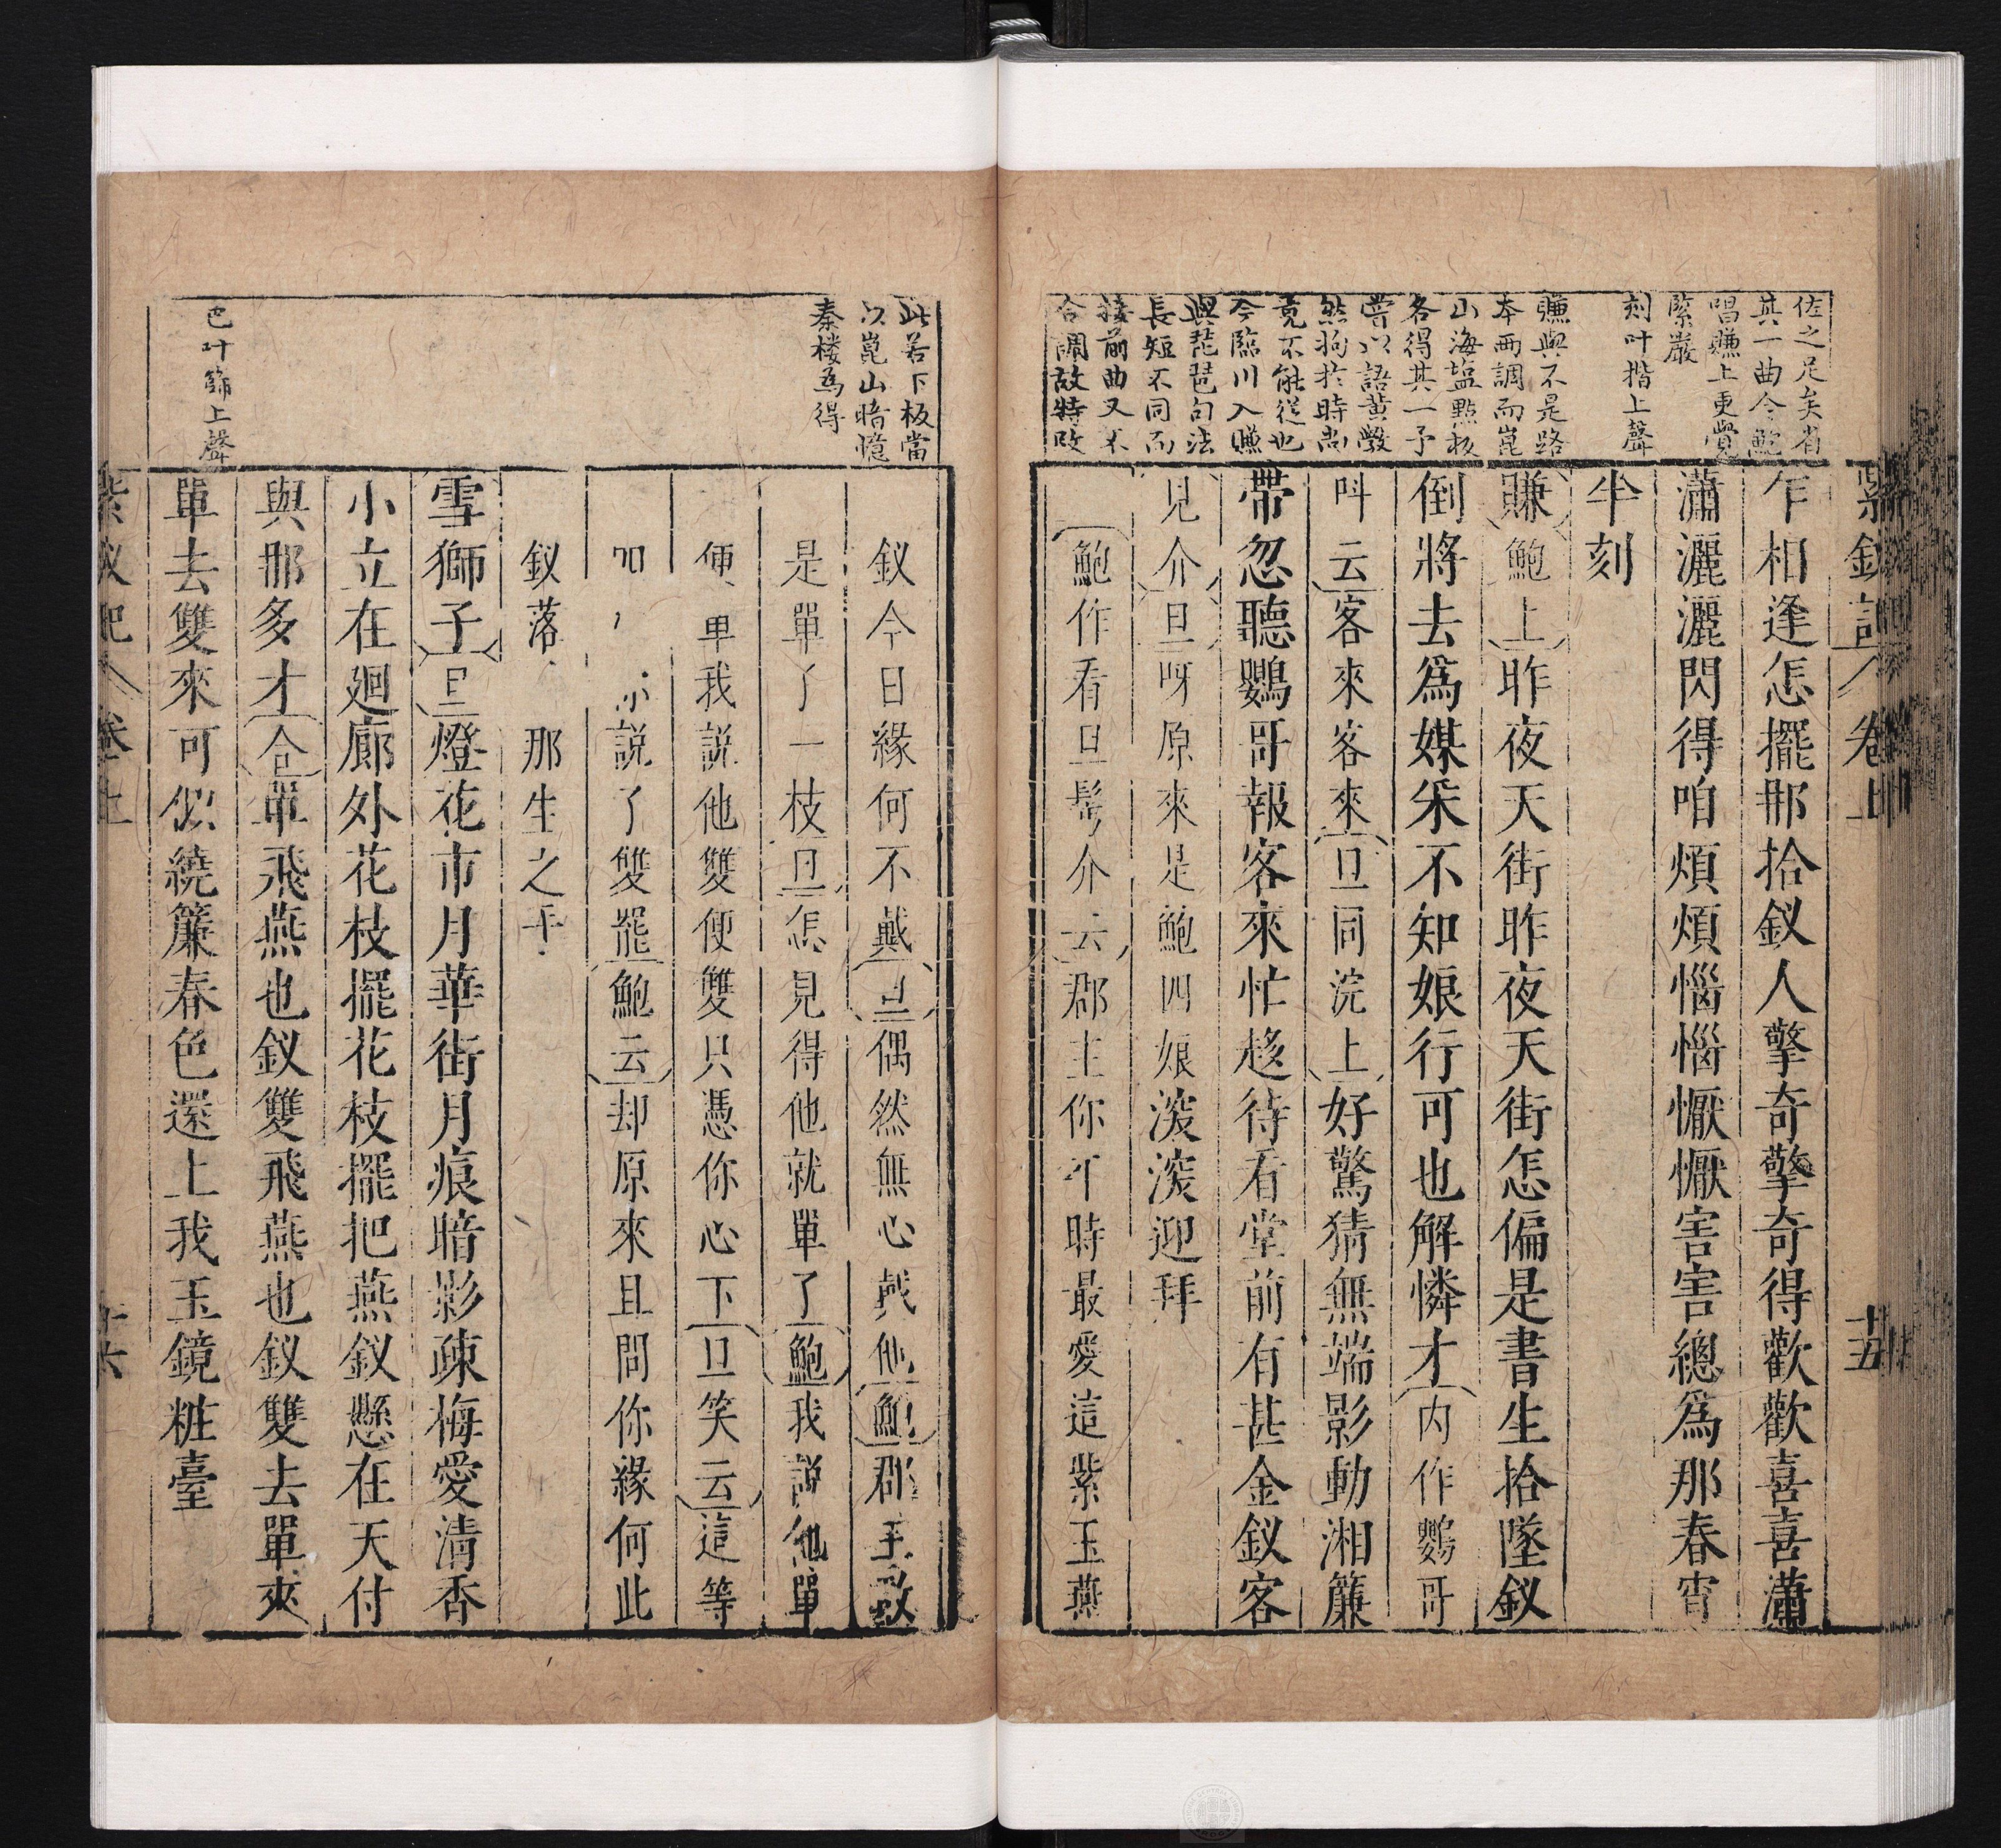 佐之足矣省
其一曲今鮑
唱賺上更覺
緊嚴
刻叶揩上聲
賺與不是路
本两調而崑
山海塩點板
各得其一予
嘗以語黃
然拘於時尚
竟不能從也
今臨川入賺
與琵琶句法
長短不同而
接前曲又不
合調故特改
紫釵記 卷上 十五
乍相逢怎擺那拾釵人擎奇擎奇得歡歡喜喜瀟
瀟灑灑閃得咱煩煩惱惱懨懨害害總爲那春宵
半刻
賺鮑上昨夜天街昨夜天街怎偏是書生拾墜釵
倒將去爲媒采不知娘行可也解憐才内作鸚哥
呌云客來客來旦同浣上好驚猜無端影動湘簾
帶忽聽鸚哥報客來忙趍待看堂前有甚金釵客
見介旦呀原來是鮑四娘滚滚迎拜
鮑作看旦髩介云郡主你時最愛這紫玉燕
此若下板當
以崑山暗憶
秦楼爲得
色叶篩上聲
釵今日緣何不戴旦偶然無心戴他鮑郡主敢
是單了一枝旦怎見得他就單了鮑我説他單
便單我説他雙便雙只憑你心下旦笑云這等
説了雙罷鮑云却原來且問你緣何此
釵落那生之手
雪獅子旦燈花市月華街月痕暗影疎梅愛清香
小立在廻廊外花枝擺花枝擺把燕釵懸在天付
與那多才合單飛燕也釵雙飛燕也釵雙去單來
單去雙來可似繞簾春色還上我玉鏡粧臺
紫釵記 卷上 十六